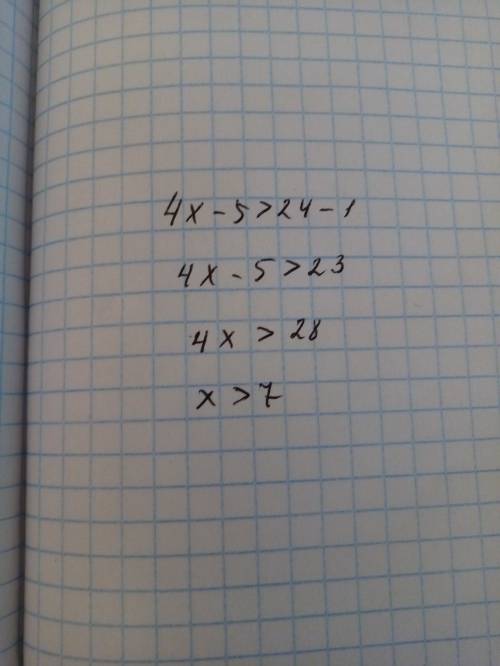 4x-5>24-1
4x-5>23
4x>28
x>7